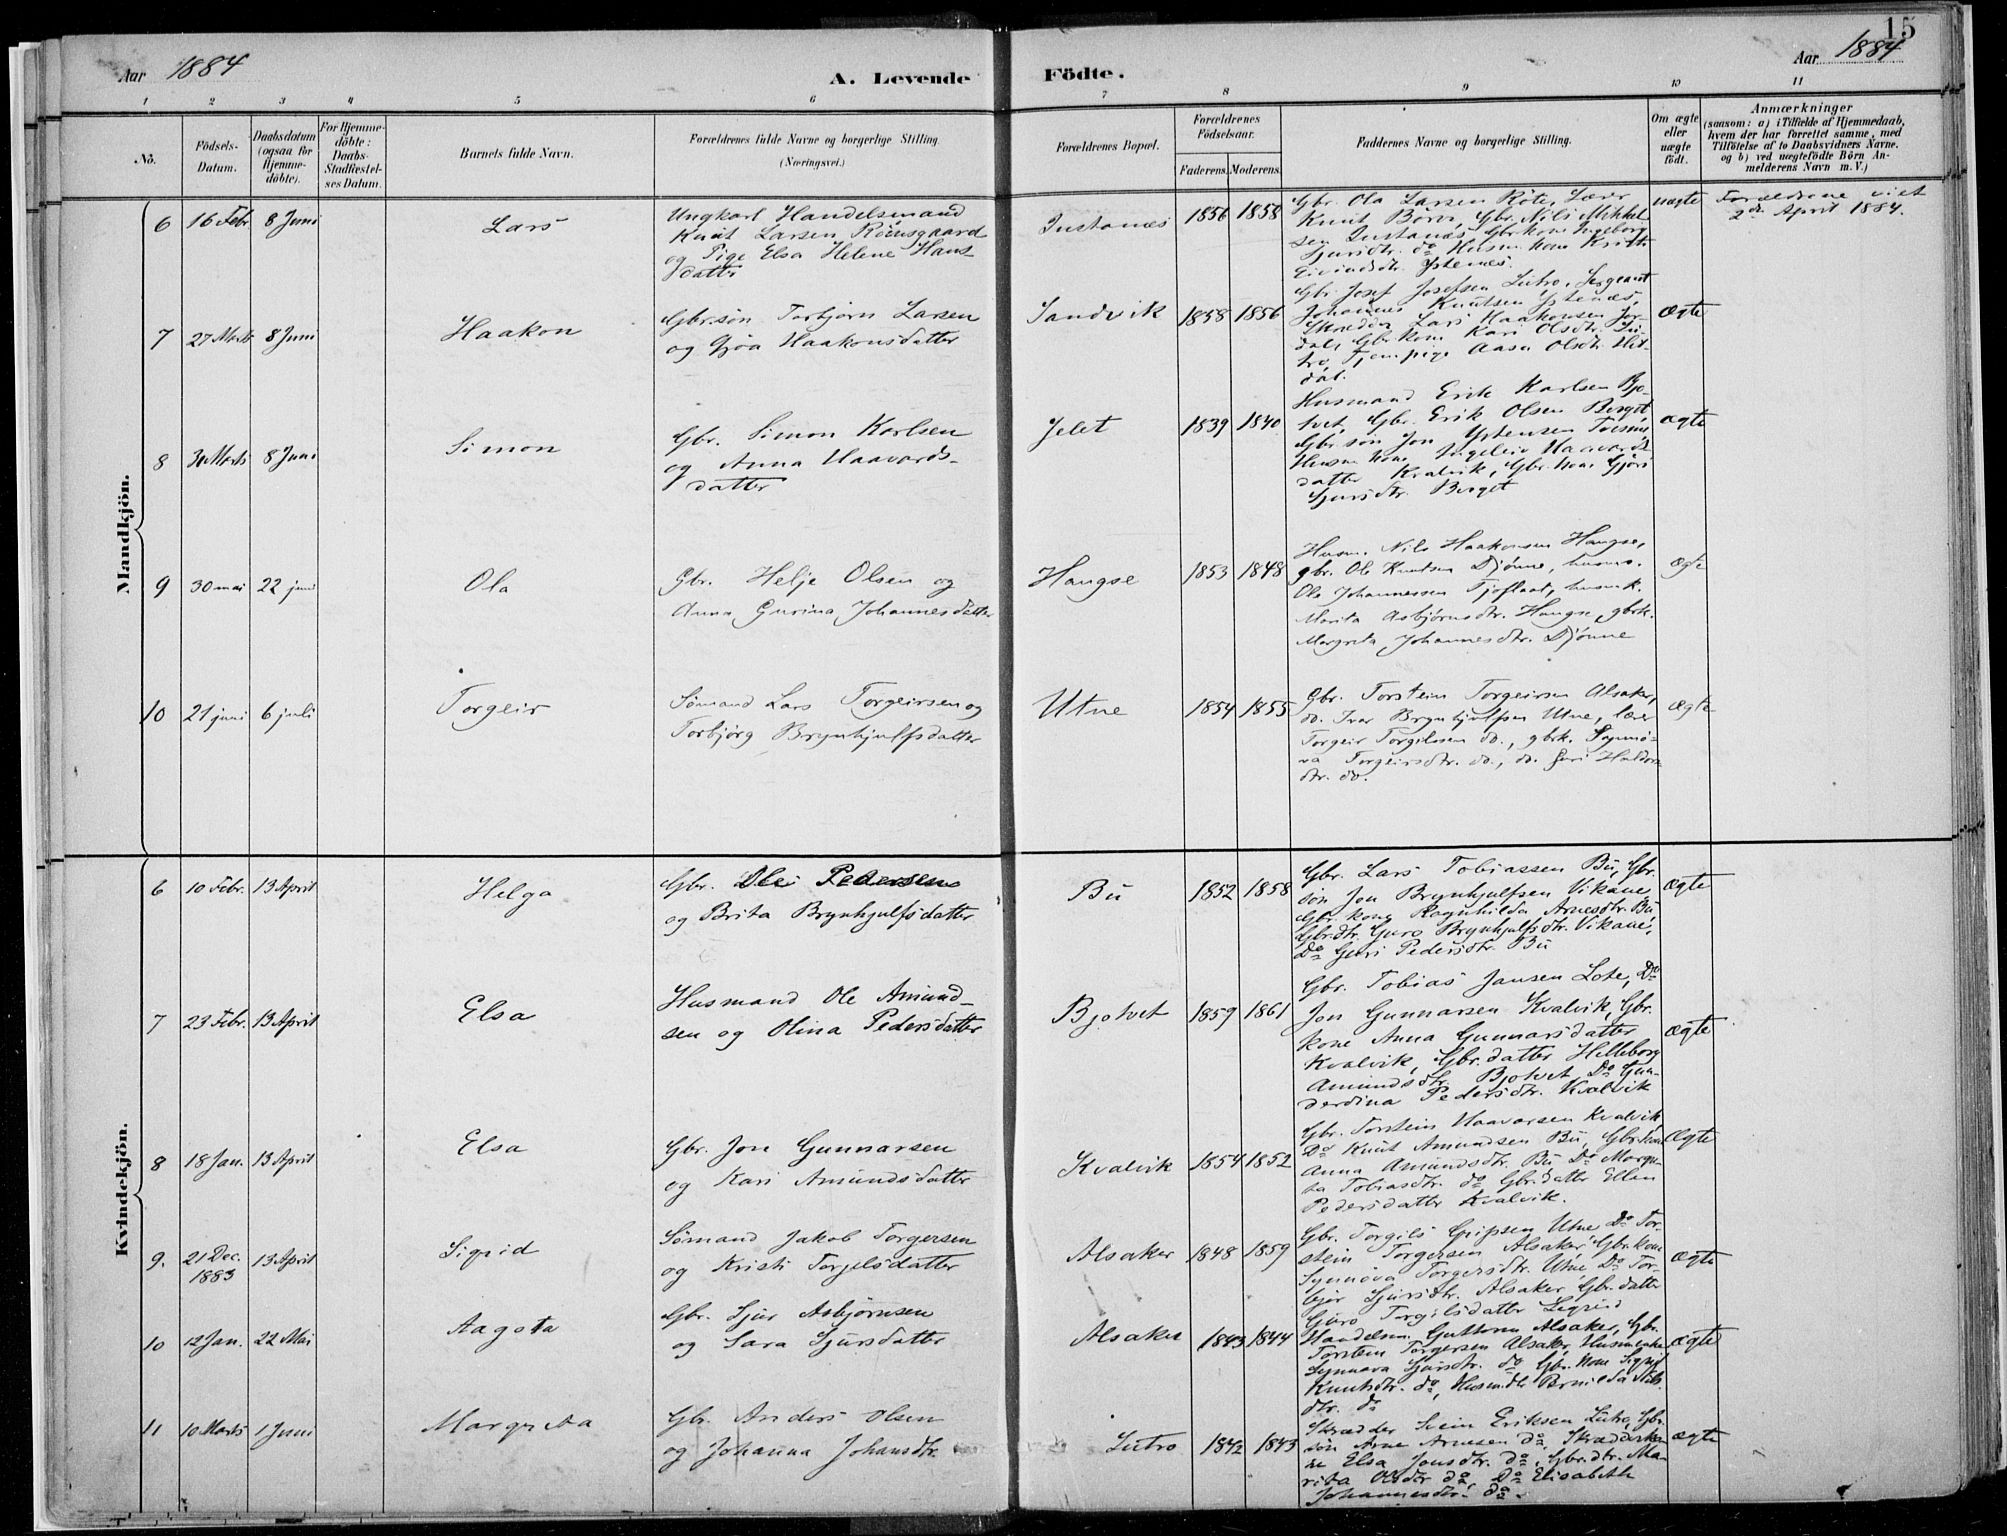 15
Aar 1884
A. Levende
Födte.
Aar 1884
1 2 3 4 5 6 7 8 9 10 11
No.
Födsels-
Datum.
Daabsdatum
(ogsaa for
Hjemme-
döbte).
For Hjemme-
döbte:
Daabs-
Stadfæstel-
ses Datum.
Barnets fulde Navn.
Forældrenes fulde Navne og borgerlige Stilling.
(Næringsvei.)
Forældrenes Bopæl.
Forældrenes
Födselsaar.
Faderens.
Moderens.
Faddernes Navne og borgerlige Stilling.
Om ægte
eller
uægte
födt.
Anmærkninger
(saasom: a) i Tilfælde af Hjemmedaab,
hvem der har forrettet samme, med
Tilföielse af to Daabsvidners Navne.
og b) ved uægtefödte Börn An-
melderens Navn m. V.)
Mandkjön.
6 16 Febr 8 Juni Lars
Ungkarl Handelsmand
Knut Larsen
og Pige Elsa Helene Hans
datter
1856 1858
Gbr. Ola Larsen Röte, Lærer
Knut Börve, Gbr. Nils Mikkel
sen
uægte
Forældrene viet
2den April 1884.
7 27 Marts 8 Juni Haakon
Gbr.sön Torbjörn Larsen
og Gjöa Haakonsdatter
Sandvik 1858 1856
Gbr. Josef Josefsen Lutro, Sergeant
Johannes Knutsen Ystenæs,
Skrædder Lars Haakonsen
Gbr.kone Kari Olsdtr. Lu-
tro, Tjen.pige Aasa Olsdtr.
ægte
8 30 Marts 8 Juni Simon
Gbr. Simon Karlsen
og Anna Haavards-
datter
Jelet 1839 1840
Husmand Erik Karlsen Bjo-
tvet, Gbr. Erik Olsen Berget
Gbr. sön Jon
Husm. kone Ingeleiv Haavards
datter Kvalvik, Gbr. kone Gjöri
Sjursdtr. Berget
ægte
9 30 mai 22 juni Ola
Gbr. Helje Olsen og
Anna Gurina Johannesdatter
Haugse 1853 1848
Husm. Nils Haakonsen Haugse,
gbr. Ole Knutsen Djönne, husm.
Ole Johannessen Tjoflaat, husmk.
Marita Asbjörnsdtr. Haugse, gbrk.
Margreta Johannesdtr. Djönne
ægte
10 21 juni 6 juli Torgeir
Sömand Lars Torgeirsen og
Torbjörg Brynhjulfsdatter
Utne 1854 1855
Gbr. Torstein Torgeirsen Alsaker,
do. Ivar Brynhjulfsen Utne, lærer
Torgeir Torgilssen do., gbrk. Synnö-
va Torgeirsdtr. do., do. Guri Haldors
dtr. do.
ægte
Kvindekjön.
6 10 Febr. 13 April Helga
Gbr. Pedersen
og Brita Brynhjulfsdatter
Bu 1852 1858
Gbr. Lars Tobiassen Bu, Gbr.
sön Jon Brynhjulfsen Vikane
Gbr. kone Ragnhilda Arnesdtr. Bu
Gbr.dtr. Guro Brynhjulfsdtr. Vikane,
Do Guri Pedersdtr. Bu
ægte
7 23 Febr. 13 April Elsa
Husmand Ole Amund-
sen og Olina Pedersdatter
Bjotvet 1859 1861
Gbr. Tobias Jansen Lote, Do
Jon Gunnarsen Kvalvik, Gbr.
kone Anna Gunnarsdatter
Kvalvik, Gbr. datter Helleborg
Amundsdtr. Bjotvet Do Gun-
derdina Pedersdtr. Kvalvik
ægte
8 18 Jan. 13 April Elsa
Gbr. Jon Gunnarsen
og Kari Amundsdatter
Kvalvik 1854 1852
Gbr. Torstein Haavarsen Kvalvik
Do Knut Amundsen Bu, Gbr.kone
Anna Amundsdtr. Bu Do Margre-
ta Tobiasdtr. do Gbr.datter Ellen
Pedersdatter Kvalvik.
Ægte
9. 21 Dec. 13 April Sigrid
1883
Sömand Jakob Torgersen
og Kristi Torgelsdatter
Alsaker 1848 1859
Gbr. Torgils Gripsen Utne Do Tor-
stein Torgersen Alsaker Gbr.kone
Synnöva Torgersdtr. Utne Do Tor-
björ Sjursdtr. Alsaker Gbr. datter
Guro Torgilsdatter
ægte
10 12 Jan. 22 Mai Aagota
Gbr. Sjur Asbjörnsen
og Sara Sjursdatter
Alsaker 1843 1844
Handelsm. Guttorm Alsaker, Gbr.
Torstein Torgersen Alsaker,
Synnöva Sjursdtr. do Gbr. kone Sigrid
Knutsdtr. do, Husm.dtr.
dtr. do
ægte
11 10 Marts 1 Juni Margreta
Gbr. Anders Olsen
og Johanna Johansdtr.
Lutro 1842 1843
Skrædder Svein Eriksen Lutro, Gbr.
sön Arne Arnesen do, Skrædderko-
ne Elsa Jonsdtr. do, Gbr.dtr. Ma-
rita Olsdtr do, Do Elisabeth
Johannesdtr. do.
ægte